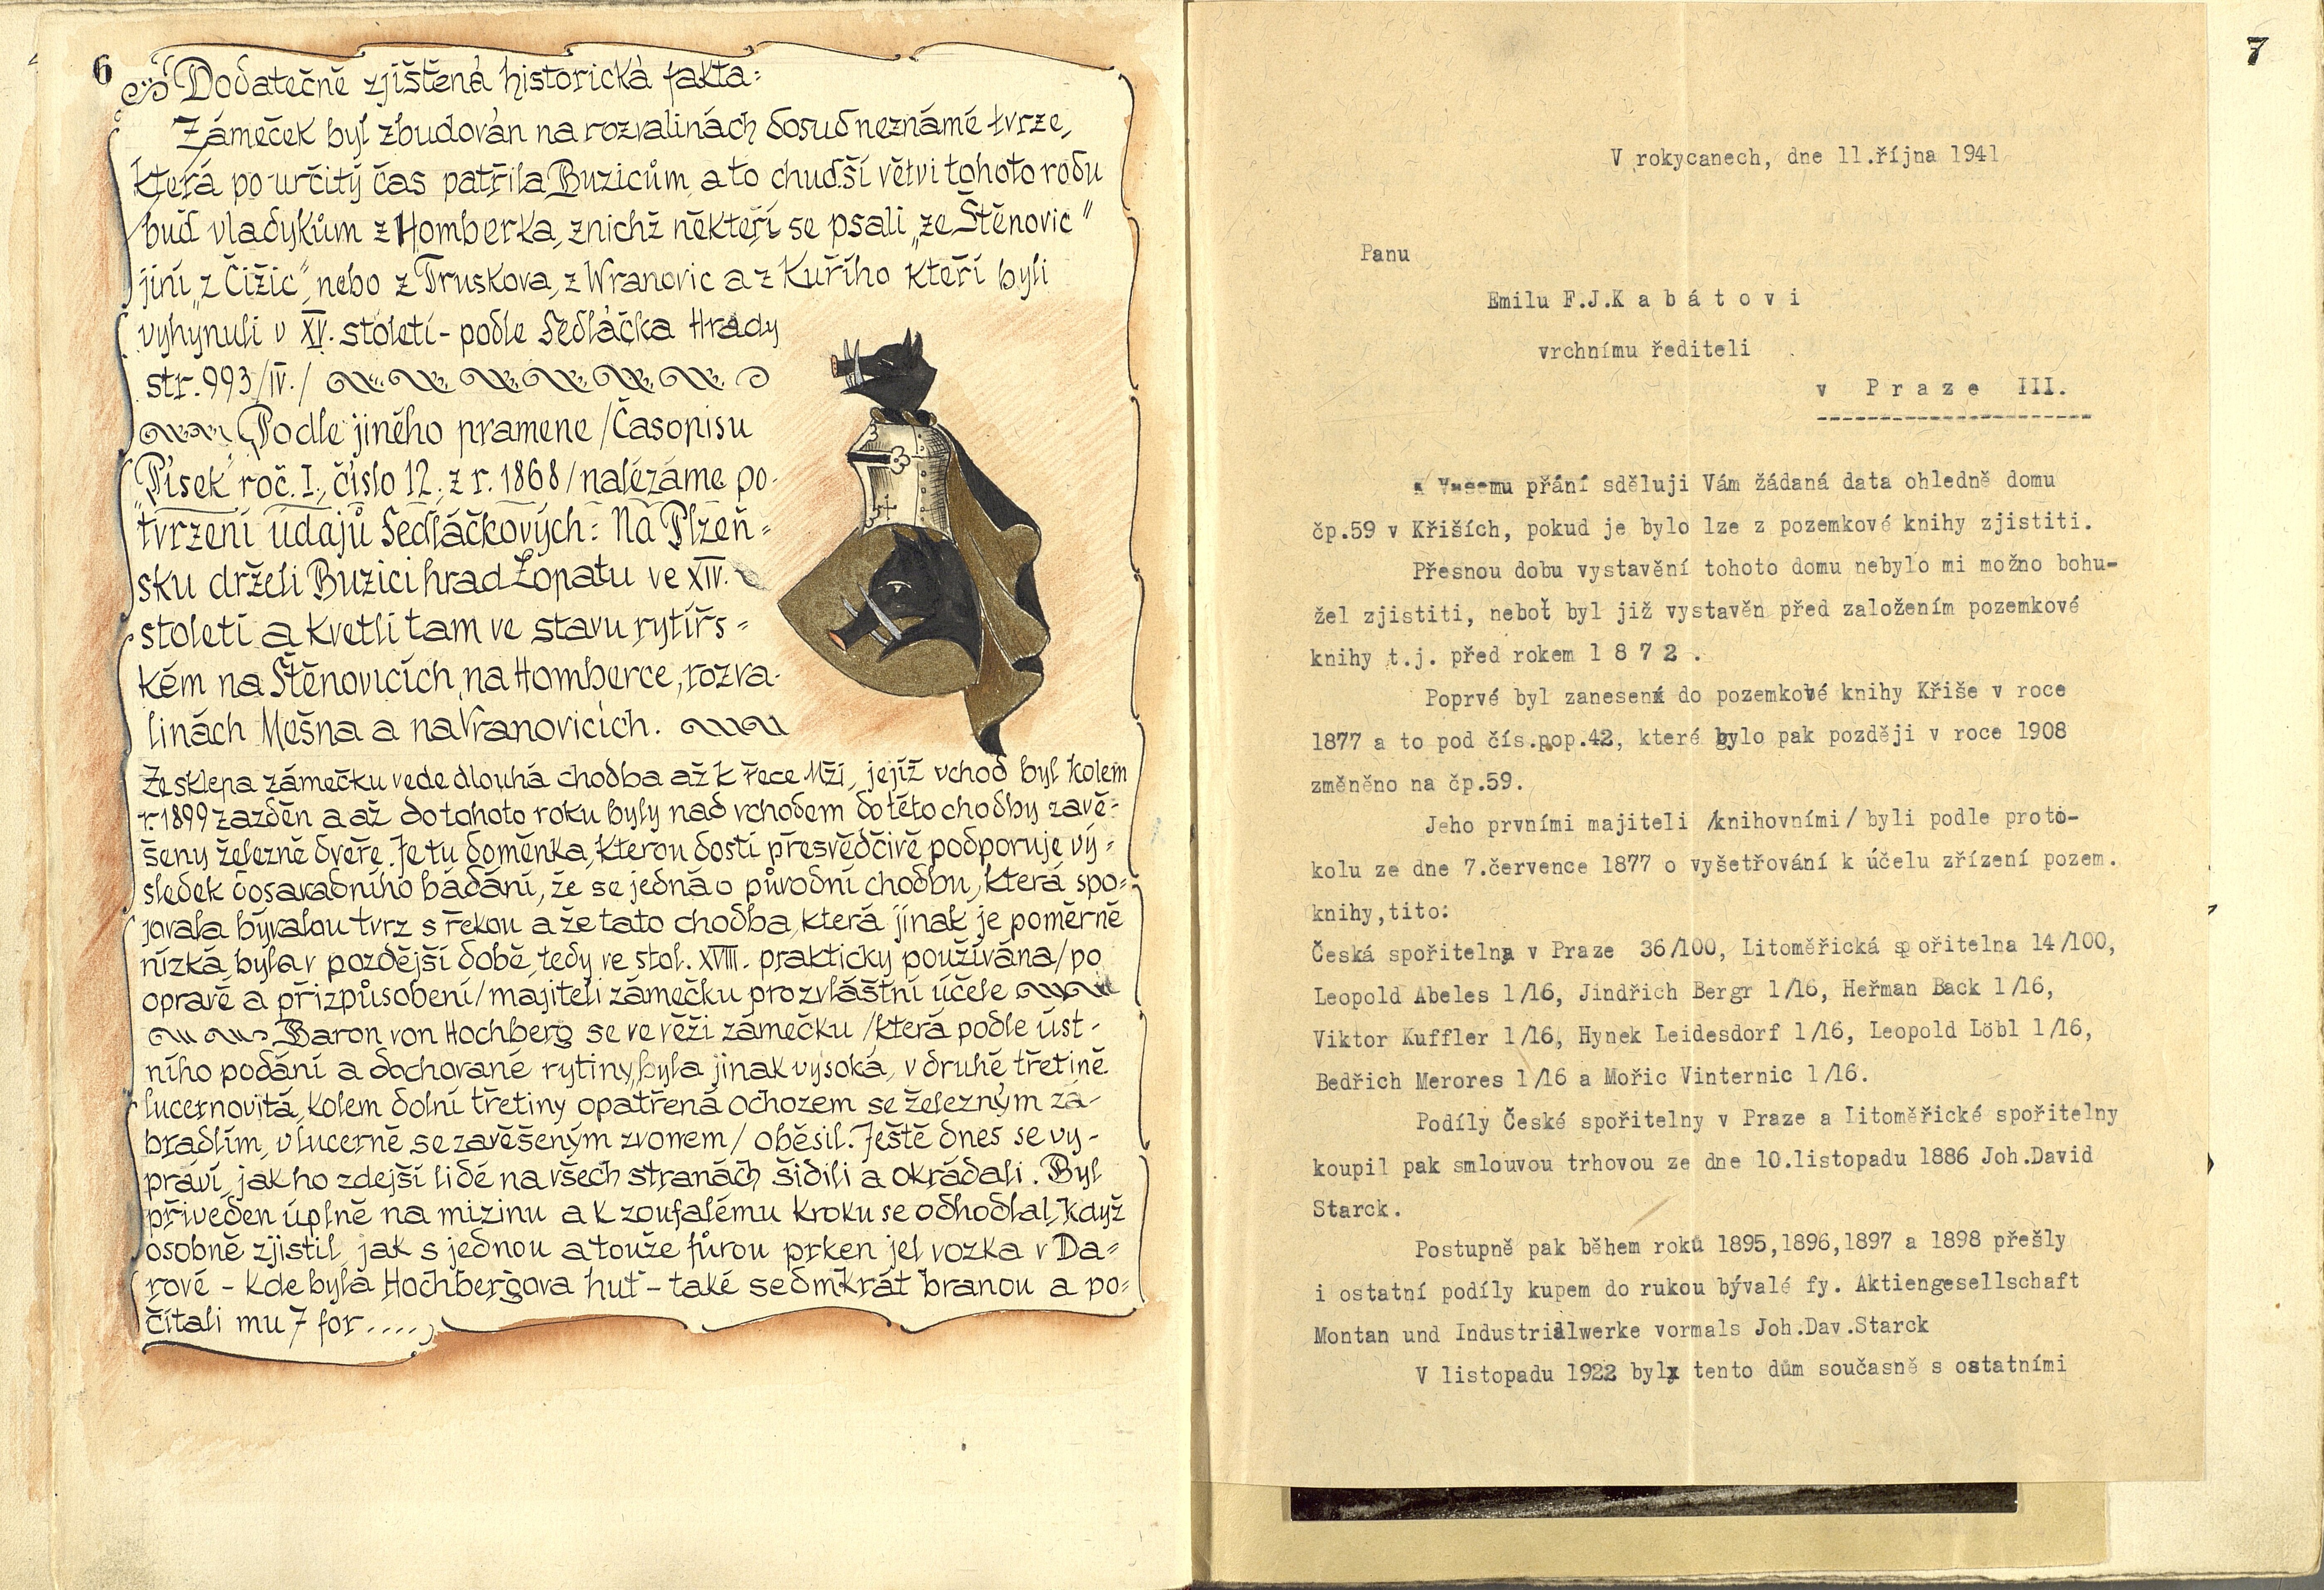 6
Dodatečně zjištěná historická fakta:
Zámeček byl zbudován na rozvalinách dosud neznámé tvrze,
která po určitý čas patřila Buzicům a to chudší větvi tohoto rodu
buď vladykům z Homberka, z nichž někteří se psali „ze Štěnovic"
jiní „z Čižic", nebo z Truskova, z Wranovic a z Kuřího kteří byli
vyhynuli v XV. století - podle Sedláčka Hrady
str. 993/IV./
Podle jiného pramene /Časopisu
„Písek" roč. I., číslo 12., z r. 1868/ nalézáme po-
tvrzení údajů Sedláčkových: Na Plzeň=
sku drželi Buzici hrad Lopatu ve XIV.
století a kvetli tam ve stavu rytířs=
kém na Štěnovicích, na Homberce, rozva-
linách Mešna a na Vranovicích.
Ze sklepa zámečku vede dlouhá chodba až k řece Mži, jejíž vchod byl kolem
r. 1899 zazděn a až do tohoto roku byly nad vchodem do této chodby zavě=
šeny železné dveře. Je tu doměnka, kterou dosti přesvědčivě podporuje vý=
sledek dosavadního bádání, že se jedná o původní chodbu, která spo=
jovala bývalou tvrz s řekou a že tato chodba, která jinak je poměrně
nízká, byla v pozdější době, tedy ve stol. XVIII. prakticky používána /po
opravě a přizpůsobení/ majiteli zámečku pro zvláštní účele
Baron von Hochberg se ve věži zámečku /která podle úst-
ního podání a dochované rytiny, byla jinak vysoká, v druhé třetině
lucernovitá, kolem dolní třetiny opatřená ochozem se železným zá-
bradlím, v lucerně se zavěšeným zvonem/ oběsil. Ještě dnes se vy-
práví, jak ho zdejší lidé na všech stranách šidili a okrádali. Byl
přiveden úplně na mizinu a k zoufalému kroku se odhodlal, když
osobně zjistil, jak s jednou a touže fůrou prken jel vozka v Da=
rové - kde byla Hochbergova huť - také sedmkrát branou a po=
čítali mu 7 for....,
7
V rokycanech, dne 11.října 1941
Panu
Emilu F.J.K a b á t o v i
vrchnímu řediteli
v P r a z e III.
K Vašemu přání sděluji Vám žádaná data ohledně domu
čp.59 v Křiších, pokud je bylo lze z pozemkové knihy zjistiti.
Přesnou dobu vystavění tohoto domu nebylo mi možno bohu-
žel zjistiti, neboť byl již vystavěn před založením pozemkové
knihy t.j. před rokem 1 8 7 2 .
Poprvé byl zanesen do pozemkové knihy Křiše v roce
1877 a to pod čís.pop.42, které bylo pak později v roce 1908
změněno na čp.59.
Jeho prvními majiteli /knihovními/ byli podle proto-
kolu ze dne 7.července 1877 o vyšetřování k účelu zřízení pozem.
knihy,tito:
Česká spořitelna v Praze 36/100, Litoměřická sp ořitelna 14/100,
Leopold Abeles 1/16, Jindřich Bergr 1/16, Heřman Back 1/16,
Viktor Kuffler 1/16, Hynek Leidesdorf 1/16, Leopold Löbl 1/16,
Bedřich Merores 1/16 a Mořic Vinternic 1/16.
Podíly České spořitelny v Praze a Litoměřické spořitelny
koupil pak smlouvou trhovou ze dne 10.listopadu 1886 Joh.David
Starck.
Postupně pak během roků 1895,1896,1897 a 1898 přešly
i ostatní podíly kupem do rukou bývalé fy. Aktiengesellschaft
Montan und Industrialwerke vormals Joh.Dav.Starck
V listopadu 1922 byl tento dům současně s ostatními